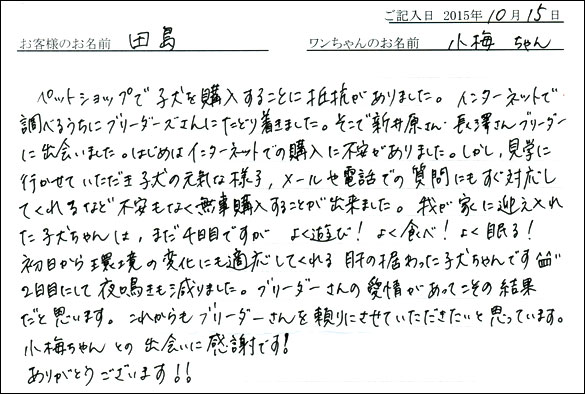 ご記入日 2015年10月15日
お客様のお名前 田島 ワンちゃんのお名前 小梅ちゃん
ペットショップで子犬を購入することに抵抗がありました。インターネットで
調べるうちにブリーダーズさんにたどり着きました。そこで新井原さん・長澤さんブリーダー
に出会いました。はじめはインターネットでの購入に不安がありました。しかし、見学に
行かせていただき子犬の元気な様子、メールや電話での質問にもすぐ対応し
てくれるなど不安もなく無事購入することが出来ました。我が家に迎え入れ
た子犬ちゃんは、まだ4日目ですが よく遊び！よく食べ！よく眠る！
初日から環境の変化にも適応してくれる肝の据わった子犬ちゃんです
2日目にして夜鳴きも減りました。ブリーダーさんの愛情があってこその結果
だと思います。これからもブリーダーさんを頼りにさせていただきたいと思っています。
小梅ちゃんとの出会いに感謝です！
ありがとうございます！！